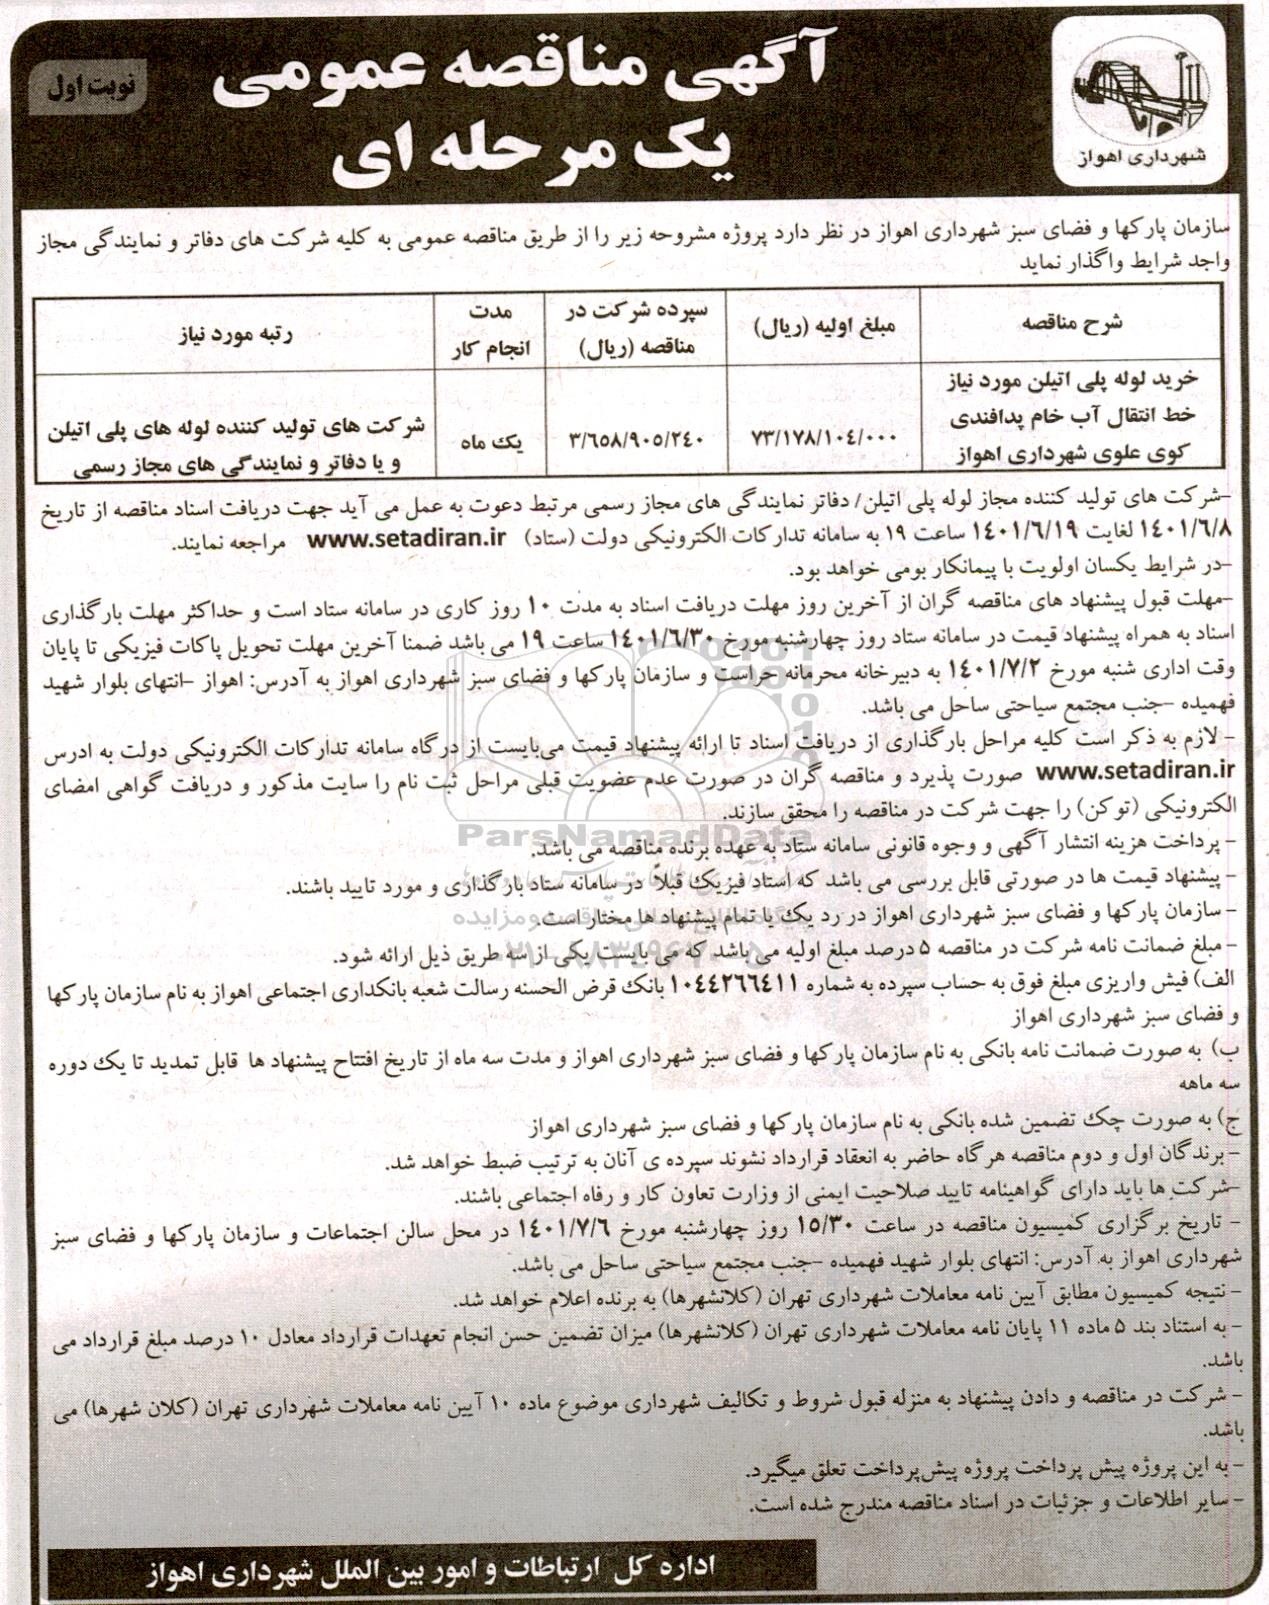 آگهی مناقصه عمومی
یک مرحله ای
نوبت اول
شهرداری اهواز
سازمان پارکها و فضای سبز شهرداری اهواز در نظر دارد پروژه مشروحه زیر را از طریق مناقصه عمومی به کلیه شرکت های دفاتر و نمایندگی مجاز
واجد شرایط واگذار نماید
شرح مناقصه
مبلغ اولیه (ریال)
سپرده شرکت در
مناقصه (ریال)
مدت
انجام کار
رتبه مورد نیاز
خرید لوله پلی اتیلن مورد نیاز
خط انتقال آب خام پدافندی
کوی علوی شهرداری اهواز
۷۳/۱۷۸/۱۰۴/۰۰۰
۳/۶۵۸/۹۰۵/۲۴۰
یک ماه
شرکت های تولید کننده لوله های پلی اتیلن
و یا دفاتر و نمایندگی های مجاز رسمی
-شرکت های تولید کننده مجاز لوله پلی اتیلن/ دفاتر نمایندگی های مجاز رسمی مرتبط دعوت به عمل می آید جهت دریافت اسناد مناقصه از تاریخ
۱۴۰۱/۶/۸ لغایت ۱۴۰۱/۶/۱۹ ساعت ۱۹ به سامانه تدارکات الکترونیکی دولت (ستاد) www.setadiran.ir مراجعه نمایند.
-در شرایط یکسان اولویت با پیمانکار بومی خواهد بود.
-مهلت قبول پیشنهاد های مناقصه گران از آخرین روز مهلت دریافت اسناد به مدت ۱۰ روز کاری در سامانه ستاد است و حداکثر مهلت بارگذاری
اسناد به همراه پیشنهاد قیمت در سامانه ستاد روز چهارشنبه مورخ ۱۴۰۱/۶/۳۰ ساعت ۱۹ می باشد ضمنا آخرین مهلت تحویل پاکات فیزیکی تا پایان
وقت اداری شنبه مورخ ۱۴۰۱/۷/۲ به دبیرخانه محرمانه حراست و سازمان پارکها و فضای سبز شهرداری اهواز به آدرس: اهواز -انتهای بلوار شهید
فهمیده -جنب مجتمع سیاحتی ساحل می باشد.
- لازم به ذکر است کلیه مراحل بارگذاری از دریافت اسناد تا ارائه پیشنهاد قیمت می‌بایست از درگاه سامانه تدارکات الکترونیکی دولت به ادرس
www.setadiran.ir صورت پذیرد و مناقصه گران در صورت عدم عضویت قبلی مراحل ثبت نام را سایت مذکور و دریافت گواهی امضای
الکترونیکی (توکن) را جهت شرکت در مناقصه را محقق سازند.
ParsNamadData
- پرداخت هزینه انتشار آگهی و وجوه قانونی سامانه ستاد به عهده برنده مناقصه می باشد.
- پیشنهاد قیمت ها در صورتی قابل بررسی می باشد که اسناد فیزیک قبلاً در سامانه ستاد بارگذاری و مورد تایید باشند.
- سازمان پارکها و فضای سبز شهرداری اهواز در رد یک یا تمام پیشنهاد ها مختار است.
- مبلغ ضمانت نامه شرکت در مناقصه ۵ درصد مبلغ اولیه می باشد که می بایست یکی از سه طریق ذیل ارائه شود.
الف) فیش واریزی مبلغ فوق به حساب سپرده به شماره ۱۰۴۴۲۶۶۴۱۱ بانک قرض الحسنه رسالت شعبه بانکداری اجتماعی اهواز به نام سازمان پارکها
و فضای سبز شهرداری اهواز
ب) به صورت ضمانت نامه بانکی به نام سازمان پارکها و فضای سبز شهرداری اهواز و مدت سه ماه از تاریخ افتتاح پیشنهاد ها قابل تمدید تا یک دوره
سه ماهه
ج) به صورت چک تضمین شده بانکی به نام سازمان پارکها و فضای سبز شهرداری اهواز
- برندگان اول و دوم مناقصه هرگاه حاضر به انعقاد قرارداد نشوند سپرده ی آنان به ترتیب ضبط خواهد شد.
-شرکت ها باید دارای گواهینامه تایید صلاحیت ایمنی از وزارت تعاون کار و رفاه اجتماعی باشند.
- تاریخ برگزاری کمیسیون مناقصه در ساعت ۱۵/۳۰ روز چهارشنبه مورخ ۱۴۰۱/۷/۶ در محل سالن اجتماعات و سازمان پارکها و فضای سبز
شهرداری اهواز به آدرس: انتهای بلوار شهید فهمیده -جنب مجتمع سیاحتی ساحل می باشد.
- نتیجه کمیسیون مطابق آیین نامه معاملات شهرداری تهران (کلانشهرها) به برنده اعلام خواهد شد.
- به استناد بند ۵ ماده ۱۱ پایان نامه معاملات شهرداری تهران (کلانشهرها) میزان تضمین حسن انجام تعهدات قرارداد معادل ۱۰ درصد مبلغ قرارداد می
باشد.
- شرکت در مناقصه و دادن پیشنهاد به منزله قبول شروط و تکالیف شهرداری موضوع ماده ۱۰ آیین نامه معاملات شهرداری تهران (کلان شهرها) می
باشد.
- به این پروژه پیش پرداخت پروژه پیش‌پرداخت تعلق میگیرد.
- سایر اطلاعات و جزئیات در اسناد مناقصه مندرج شده است.
اداره کل ارتباطات و امور بین الملل شهرداری اهواز